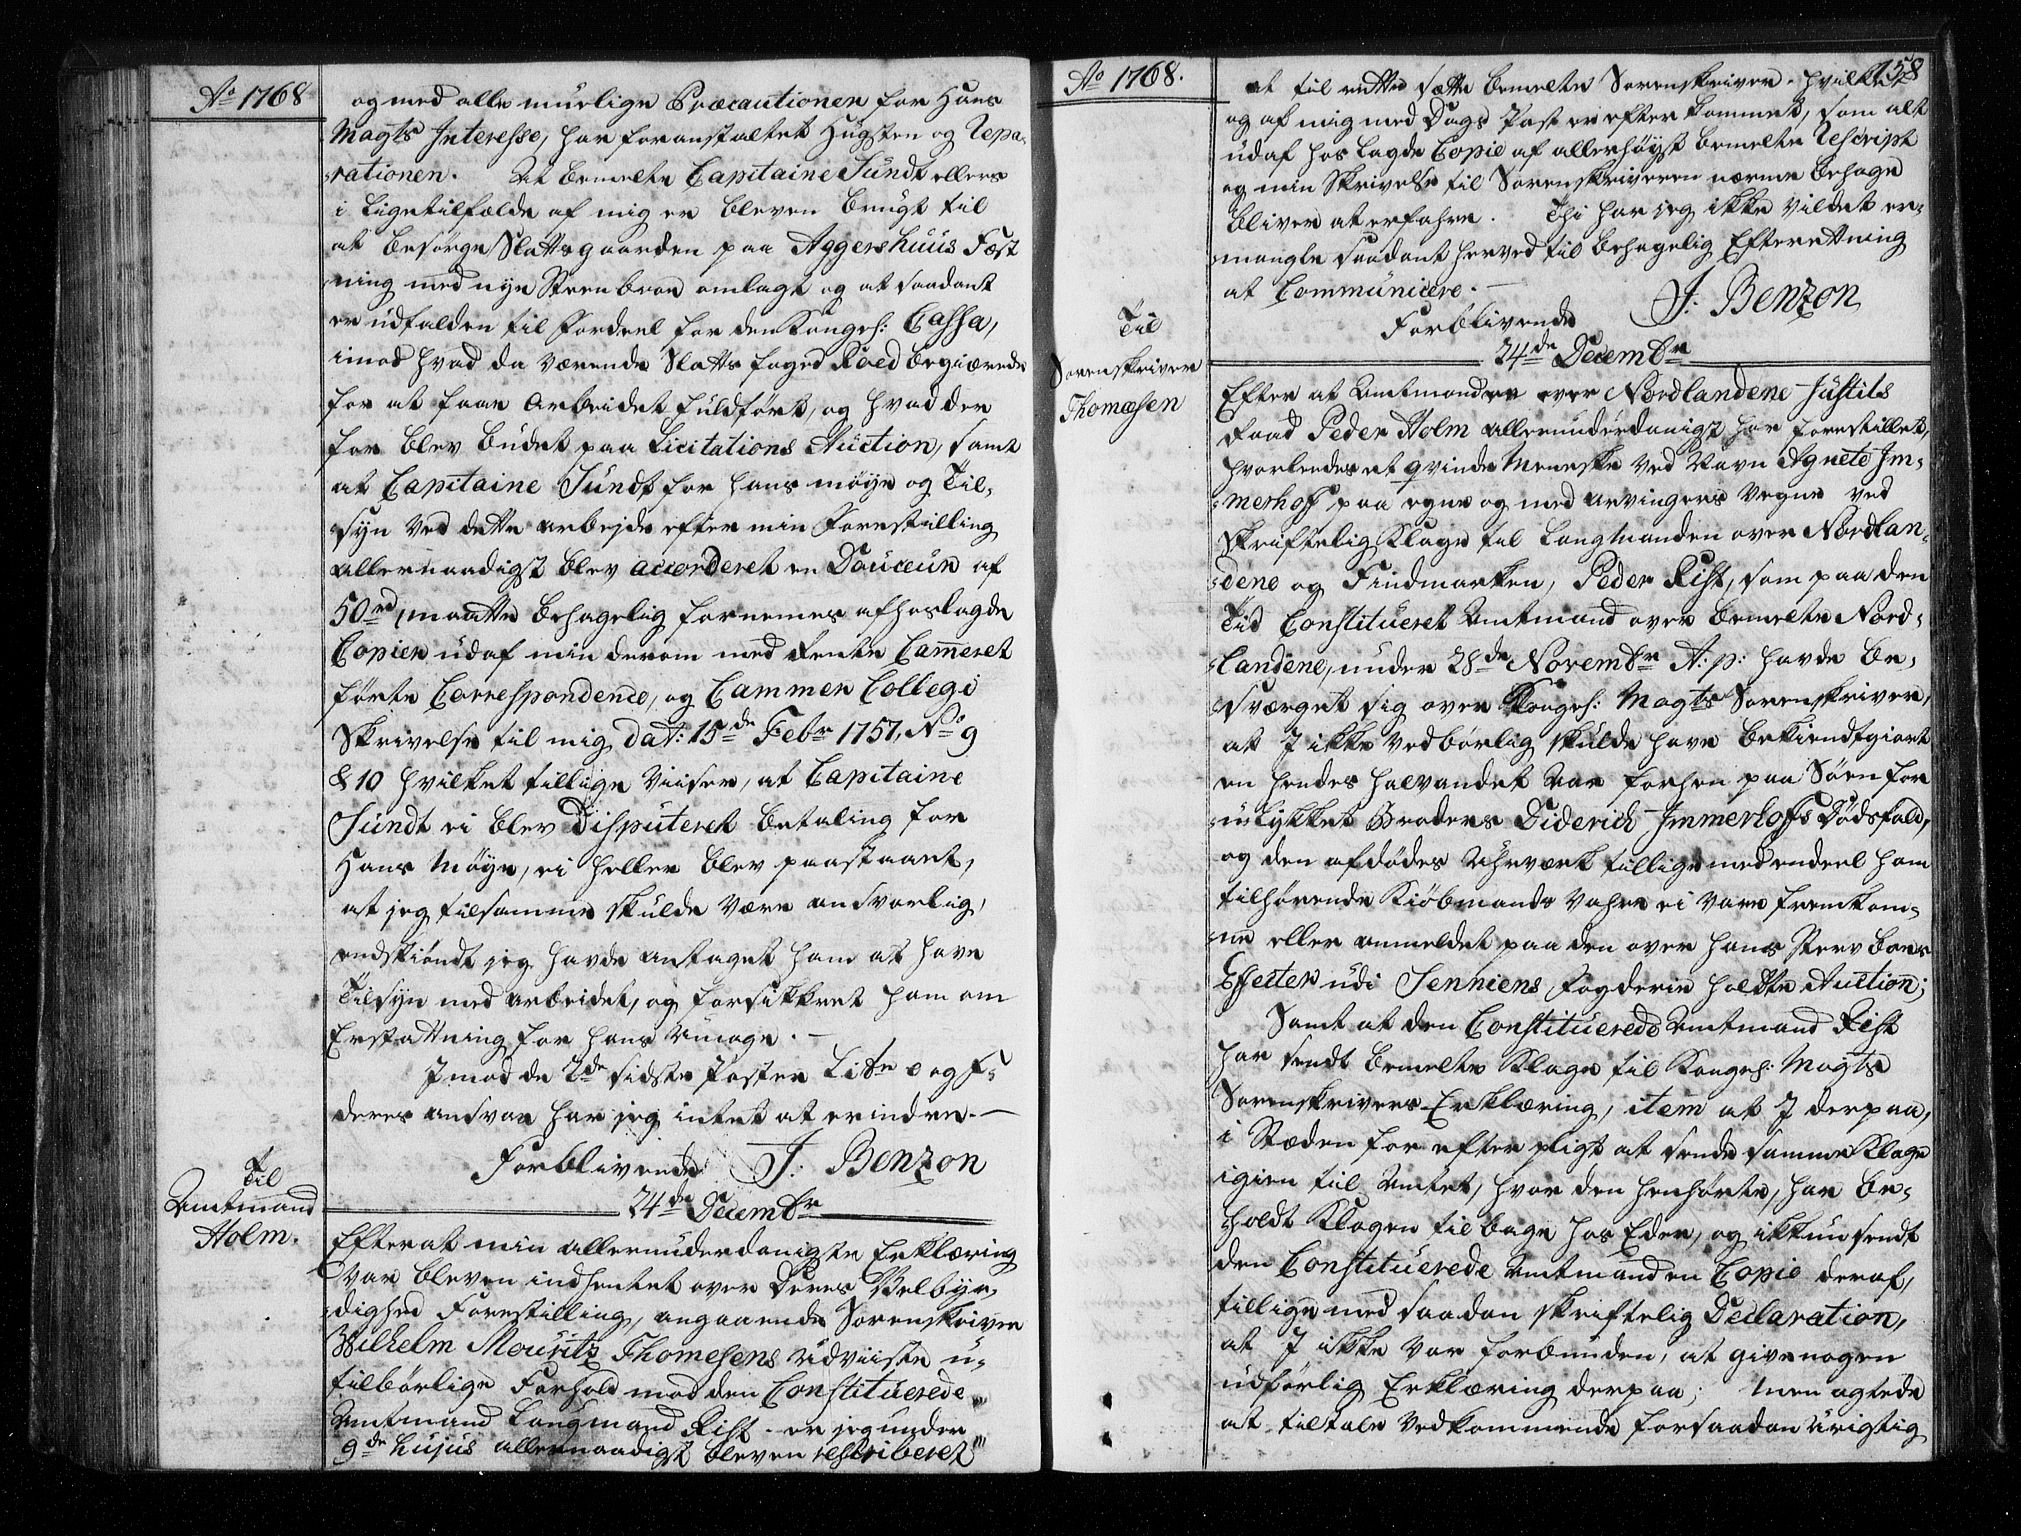 Ao 1768
og med alle muelige Præcautioner for Hans
Mayts Interesse, har foranstaltet Hugsten og Repa-
-rationen. At bemelte Capitaine Sundt ellers
i ligetilfælde af mig er bleven brugt til
at besørge Slottsgaarden paa Aggershuus Fæst
ning med nye Steenbroe omlagt og at saadant
er udfalden til Fordeel for den Kongel: Cassa,
imod hvad da værende Slottsfoged Roed begiærede
for at faae Arbeidet fuldført, og hvad der
for blev budet paa Licitations Auction, samt
at Capitaine Sundt for hans møye og Til-
syn ved dette arbejde efter min Forestilling
allernaadigst blev accorderet en Douceur af
50rd, maatte behagelig fornemes af hoslagde
Copier udaf min derom med Rente Cameret
førte Correspondence, og Cammer Collegi
Skrivelse til mig dat: 15de Febr 1757, No 9
& 10 hvilket tillige viiser, at Capitaine
Sundt ei blev disputeret betaling for
Hans Møye, ei heller blev paastaaet,
at jeg tilsamme skulde være ansvarlig,
endskiøndt jeg havde antaget ham at have
Tilsyn med arbeidet, og forsikkret ham om
Erstattning for hans Umage. —
Imod de 2de sidste Poster Litr e og F-
deres ansvar har jeg intet at erindre. —
Forblivende J: Benzon
24de Decembr
Til
Amtmand
Holm.
Efter at min allerunderdanigste Erklæring
var bleven indhentet over Deres Velbyr-
-dighed Forestilling, angaaende Sorenskriver
Wilhelm Mouritz Thomesens Udviiste u-
tilbørlige Forhold mod den Constituerede
Amtmand Laugmand Rist - er jeg under
9de hujus allernaadigst bleven rescriberet
Ao 1768.
158
at til rette sætte bemelte Sorenskriver - hvilket
og af mig med Dags Post er efterkommet, som alt
udaf hoslagde Copie af allerhøyst bemelte Rescript
og min Skrivelse til Sorenskriveren nærme behage
bliver at erfahre. Thi har jeg ikke vildet er-
mangle saadant herved til behagelig Efterettning
at Communicere. —
Forblivende J: Benzon
24de Decembr
Til
Sorenskriver
Thomæsen
Efter at Amtmanden over Nordlandene Justits
Raad Peder Holm allerunderdanigst har forestillet,
hvorledes et qvinde Meneske ved Navn Agnete Im-
-merhoff paa egne og med arvingers Vegne ved
Skriftelig Klage til Laugmanden over Nordlan-
-dene og Findmarken, Peder Rist, som paa den
Tid Constitueret Amtmand over bemelte Nord-
-landene, under 28de Novembr A: p: havde be-
sværget sig over Kongel: Mayts Sorenskriver,
at I ikke vedbørlig skulde have bekiendtgiort
en hendes halvandet Aar forhen paa Søen for
-ulykket Broders Diderich Immerhoffs Dødsfald,
og den afdødes Uhrværk tillige med endeel ham
tilhørende Kiøbmands Vahre ei vare fremkom-
-ne eller anmeldet paa den over hans Sterv boes
Effecter udi Senniens Fogderie holdte Auction;
Samt at den Constituerede Amtmand Rist
har sendt bemelte Klage til Kongel: Mayts
Sorenskrivers Erklæring, item at I derpaa,
i Stæden for efter pligt at sende samme Klage
igien til Amtet, hvor den henhørte, har be-
holdt Klagen tilbage hos Eder, og ikkun sendt
den Constituerede Amtmand en Copie deraf,
tillige med saadan skriftelig Declaration,
at I ikke var forbunden, at give nogen
udførlig Erklæring derpaa; men agtede
at tiltale Vedkommende for saadan urigtig